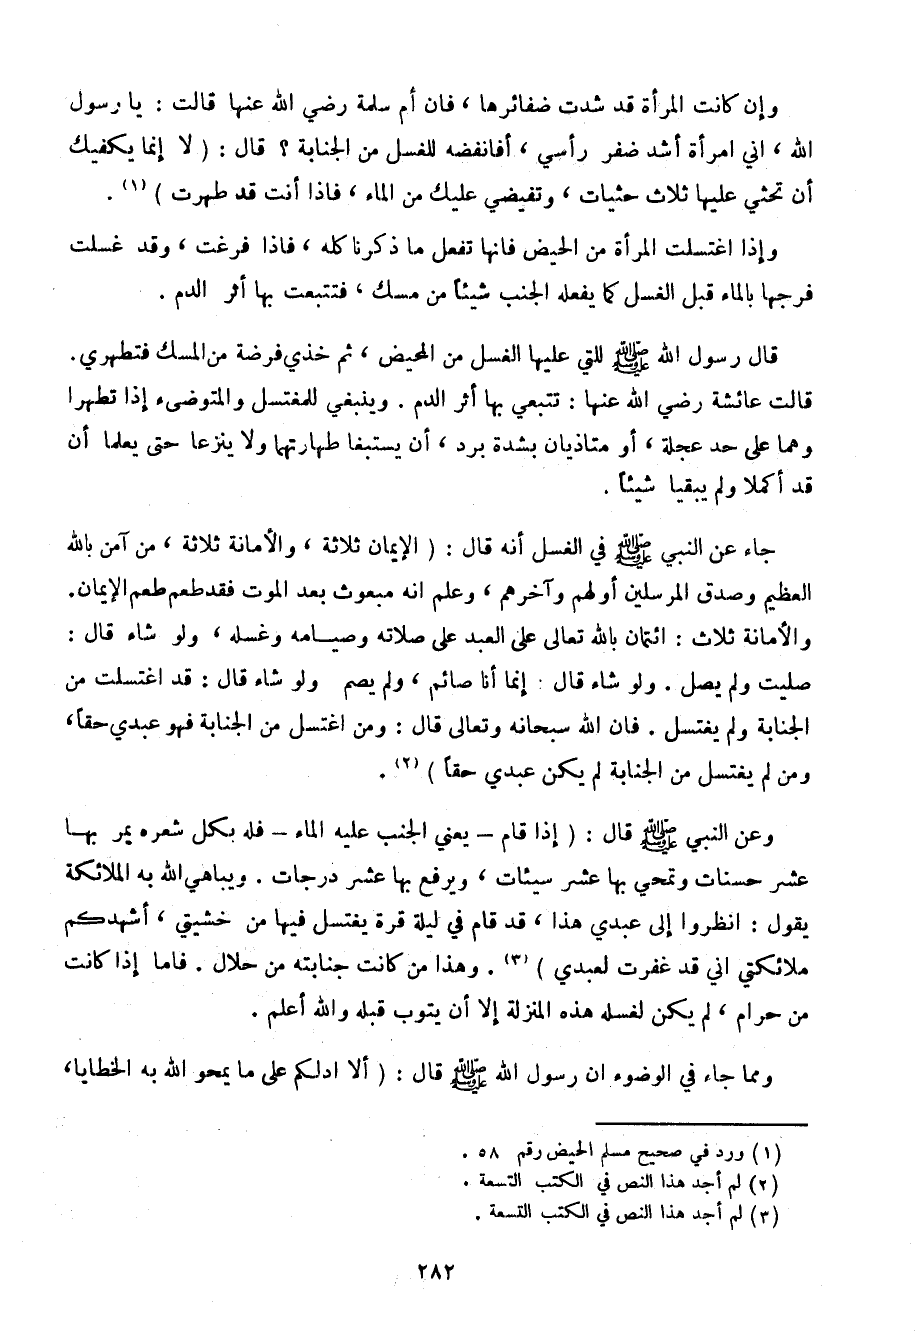 وإن كانت المرأة قد شدت ضفائرها ، فان أم سلمة رضي الله عنها قالت : يا رسول
الله ، اني امرأة أشد ضفر رأسي ، أفانفضه للغسل من الجنابة ؟ قال : ( لا إنما يكفيك
أن تحثي عليها ثلاث حثيات ، وتفيضي عليك من الماء ، فاذا أنت قد طهرت ) (١) .
وإذا اغتسلت المرأة من الحيض فانها تفعل ما ذكرنا كله ، فاذا فرغت ، وقد غسلت
فرجها بالماء قبل الغسل كما يفعله الجنب شيئاً من مسك ، فتتبعت بها أثر الدم .
قال رسول الله ﷺ للتي عليها الغسل من المحيض ، ثم خذي فرضة من المسك فتطهري.
قالت عائشة رضي الله عنها : تتبعي بها أثر الدم . وينبغي للمغتسل والمتوضىء إذا تطهرا
وهما على حد عجلة ، أو متاذيان بشدة برد ، أن يستبغا طهارتهما ولا ينزعا حتى يعلما أن
قد أكملا ولم يبقيا شيئاً .
جاء عن النبي ﷺ في الغسل أنه قال : ( الإيمان ثلاثة ، والأمانة ثلاثة ، من آمن بالله
العظيم وصدق المرسلين أولهم وآخرهم ، وعلم انه مبعوث بعد الموت فقد طعم طعم الإيمان.
والأمانة ثلاث : ائتمان بالله تعالى على العبد على صلاته وصيامه وغسله ، ولو شاء قال :
صليت ولم يصل . ولو شاء قال : إنما أنا صائم ، ولم يصم ولو شاء قال : قد اغتسلت من
الجنابة ولم يغتسل . فان الله سبحانه وتعالى قال : ومن اغتسل من الجنابة فهو عبدي حقاً،
ومن لم يغتسل من الجنابة لم يكن عبدي حقاً ) (٢) .
وعن النبي ﷺ قال : ( إذا قام – يعني الجنب عليه الماء – فله بكل شعره يمر بها
عشر حسنات وتمحي بها عشر سيئات ، ويرفع بها عشر درجات . ويباهي الله به الملائكة
يقول : انظروا إلى عبدي هذا ، قد قام في ليلة قرة يغتسل فيها من خشيتي ، أشهدكم
ملائكتي اني قد غفرت لعبدي ) (٣) . وهذا من كانت جنابته من حلال . فاما إذا كانت
من حرام ، لم يكن لغسله هذه المنزلة إلا أن يتوب قبله والله أعلم .
ومما جاء في الوضوء ان رسول الله ﷺ قال : ( ألا ادلكم على ما يمحو الله به الخطايا،
(١) ورد في صحيح مسلم الحيض رقم ٥٨ .
(٢) لم أجد هذا النص في الكتب التسعة .
(٣) لم أجد هذا النص في الكتب التسعة .
٢٨٢